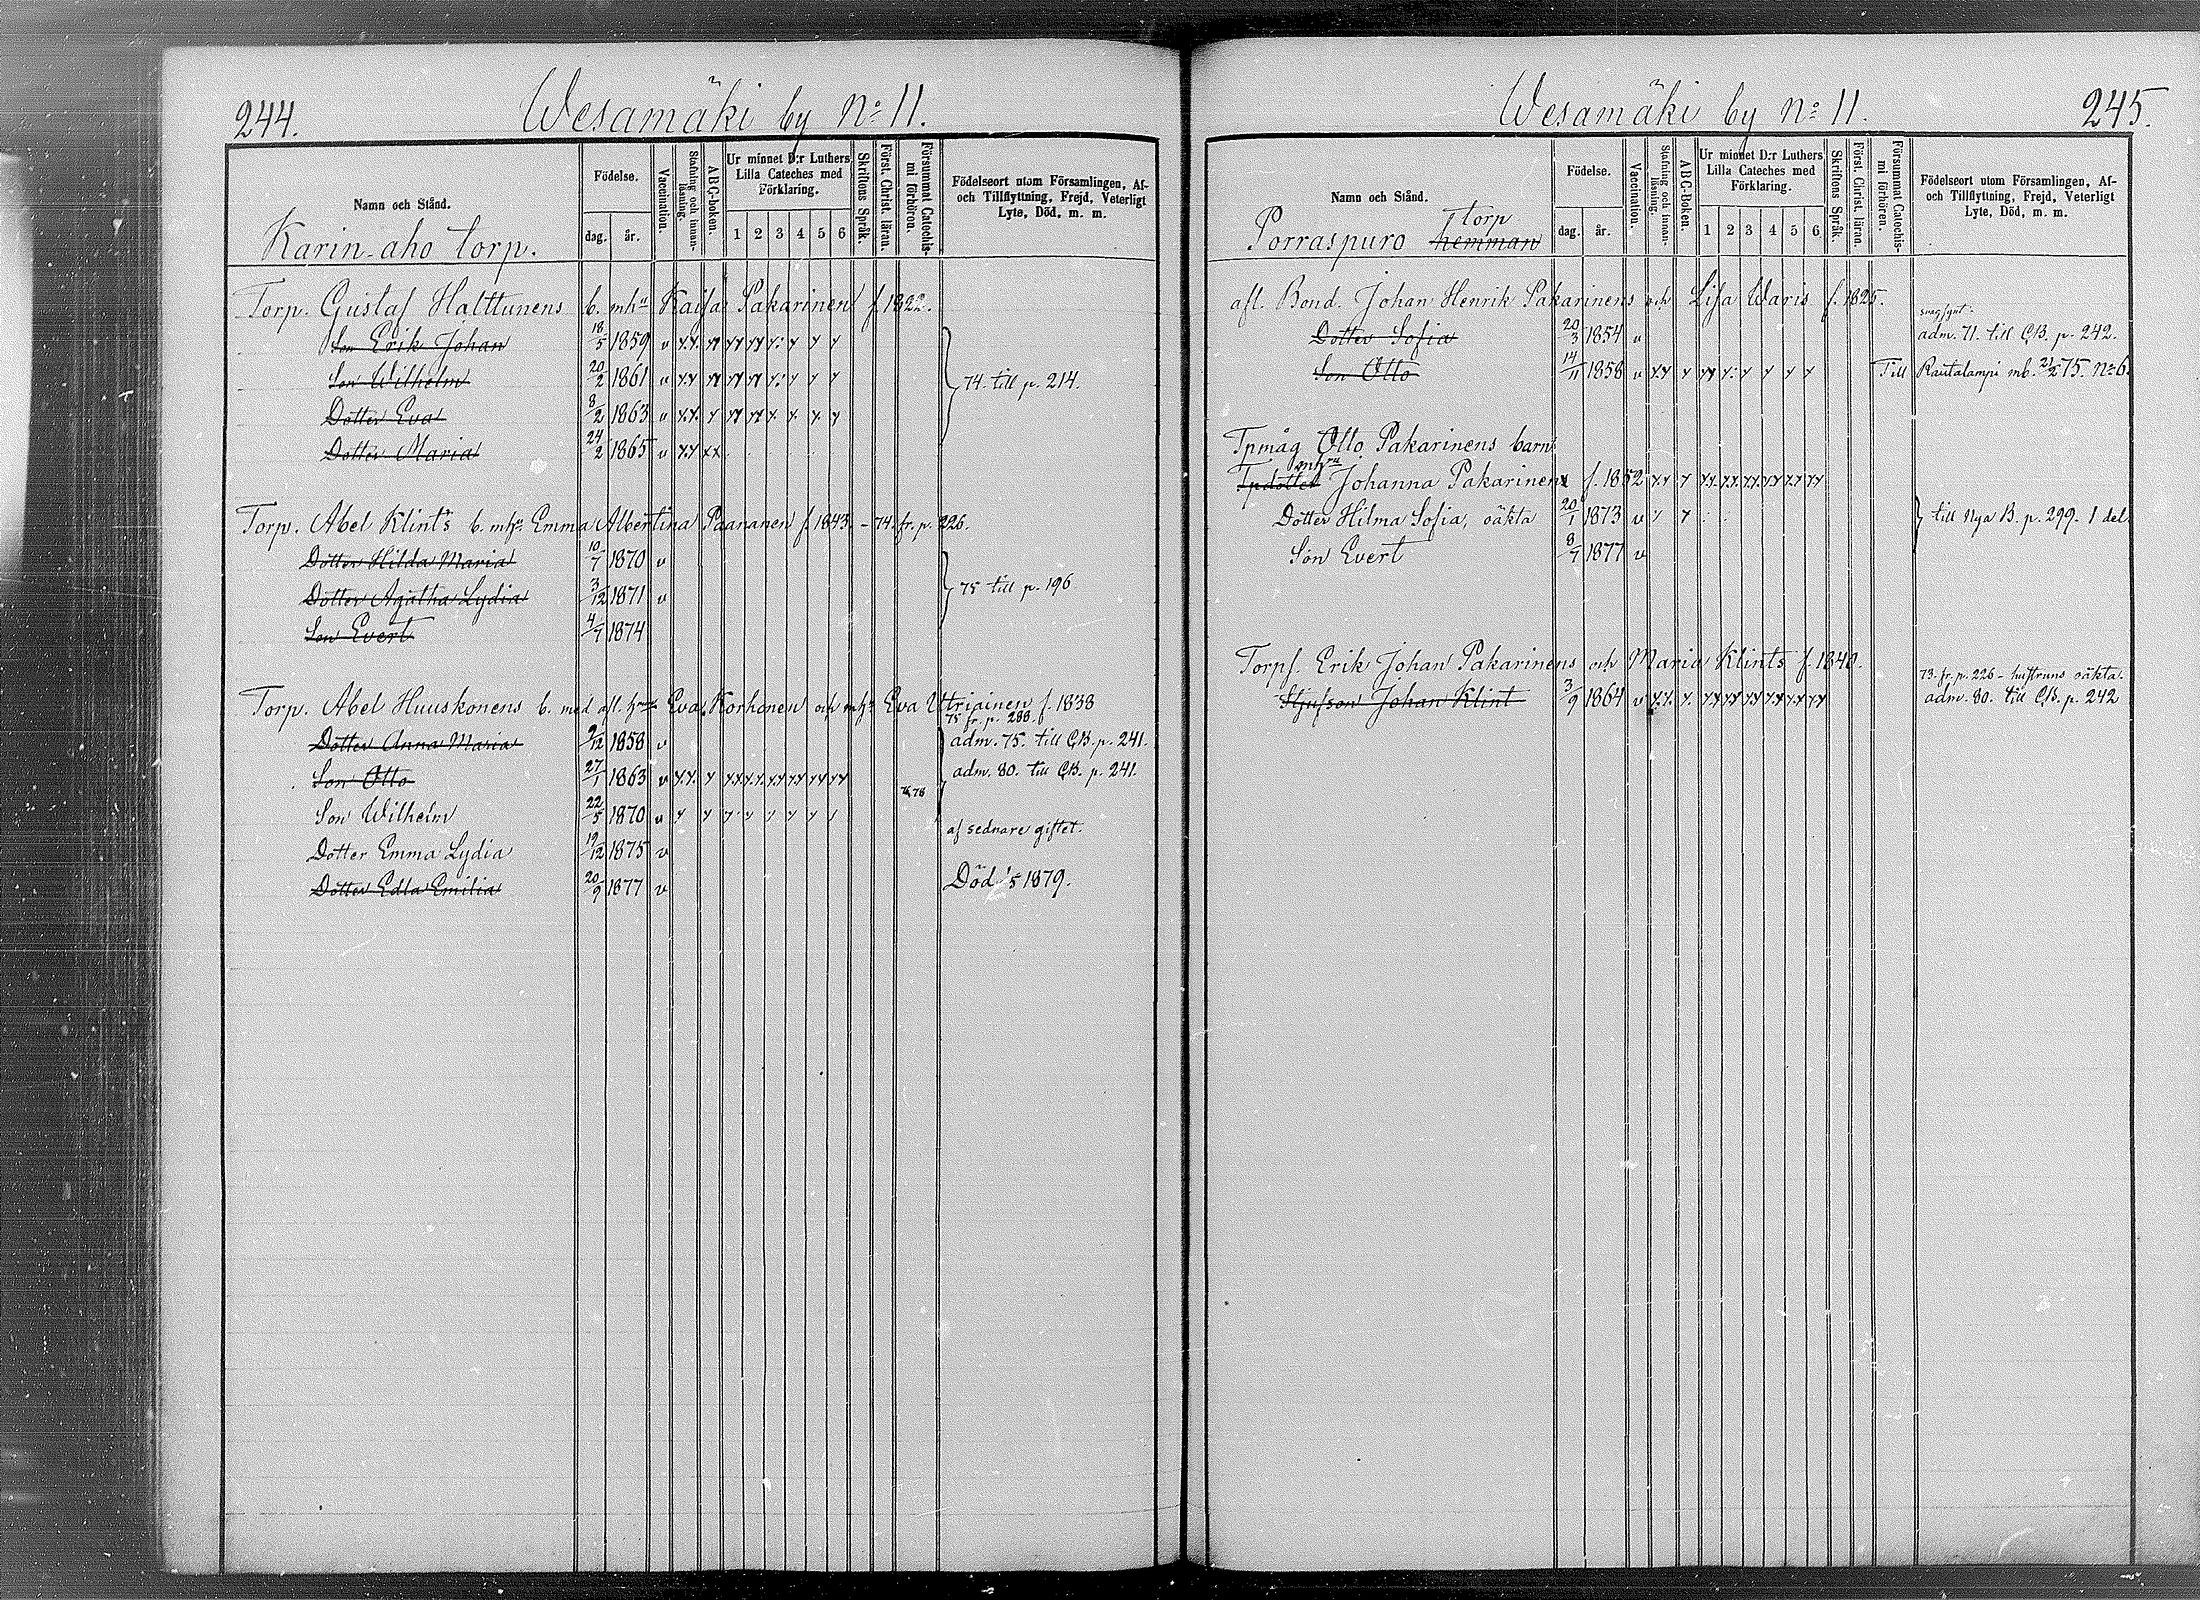 244.
Wesamäki by No 11.
Namn och Stånd.
Födelse.
dag. år.
Vaccination.
Stafning och innan-läsning.
A B C-boken.
Ur minnet D:r Luthers Lilla Cateches med Förklaring.
1 2 3 4 5 6
Skriftens Språk.
Först. Christ. läran.
Försummat Catechis-mi förhören.
Födelseort utom Församlingen, Af-
och Tillflyttning, Frejd, Veterligt
Lyte, Död, m. m.
Karin-aho torp.
Torp. Gustaf Halttunens b. m hn Kaisa Pakarinen f. 1822.
Son Erik Johan 18/5 1859
Son Wilhelm 20/2 1861 74. till p. 214.
Dotter Eva 8/2 1863
Dotter Maria 24/2 1865
Torp. Abel Klint's b. m hn Emma Albertina Paananen f. 1843. - 74. fr. p. 226.
Dotter Hilda Maria 10/7 1870 v
Dotter Agatha Lydia 3/12 1871 v 75 till p. 196
Son Evert 4/7 1874
Torp. Abel Huuskonens b. med afl. hru Eva Korhonen och m hn Eva Utriainen f. 1838
75 fr. p. 288.
Dotter Anna Maria 9/12 1858 v adm. 75. till C.B. p. 241.
Son Otto 27/1 1863 v adm. 80. till C.B. p. 241.
78
Son Wilhelm 22/5 1870 v
af sednare giftet.
Dotter Emma Lydia 19/12 1875 v
Dotter Edla Emilia 20/9 1877 v Död 1879.
Wesamäki by No 11.
245.
Namn och Stånd.
Födelse.
dag. år.
Vaccination.
Stafning och innan-läsning.
A B C-Boken.
Ur minnet D:r Luthers Lilla Cateches med Förklaring.
1 2 3 4 5 6
Skriftens Språk.
Först. Christ. läran.
Försummat Catechis-mi förhören.
Födelseort utom Församlingen, Af-
och Tillflyttning, Frejd, Veterligt
Lyte, Död, m. m.
torp
Porraspuro hemman
afl. Bond. Johan Henrik Pakarinens och Lisa Waris f. 1825.
svagsynt.
Dotter Sofia 20/3 1854 v adm. 71. till C.B. p. 242.
Son Otto 14/11 1858 v Till Rautalampi mb. 75. No 6.
Tpmåg Otto Pakarinens barn
m hru
Tpdotter Johanna Pakarinens f. 1852
Dotter Hilma Sofia, oäkta 20/1 1873 v till Nya B. p. 299. 1 del
Son Evert 8/7 1877 v
Torpf. Erik Johan Pakarinens och Maria Klints f. 1840.
73. fr. p. 226 - hustruns oäkta.
Stjufson Johan Klint 3/9 1864 v adm. 80. till C.B. p. 242